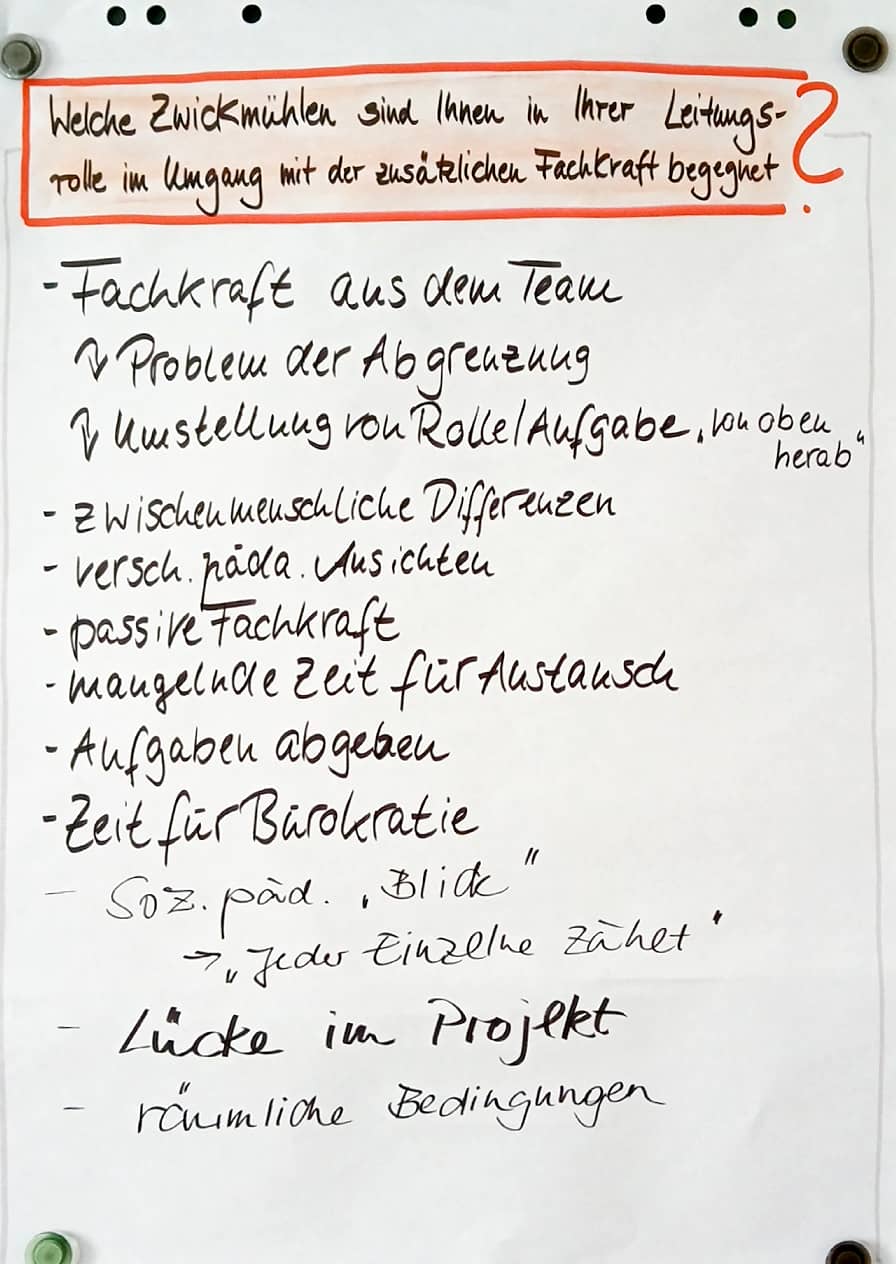 Welche Zwickmühlen sind Ihnen in Ihrer Leitungs-
rolle im Umgang mit der zusätzlichen Fachkraft begegnet?
- Fachkraft aus dem Team
↳ Problem der Abgrenzung
↳ Umstellung von Rolle/Aufgabe „von oben
herab"
- zwischenmenschliche Differenzen
- versch. päda. Ansichten
- passive Fachkraft
- mangelnde Zeit für Austausch
- Aufgaben abgeben
- Zeit für Bürokratie
- Soz. päd. „Blick"
→ „Jeder Einzelne zählet"
- Lücke im Projekt
- räumliche Bedingungen